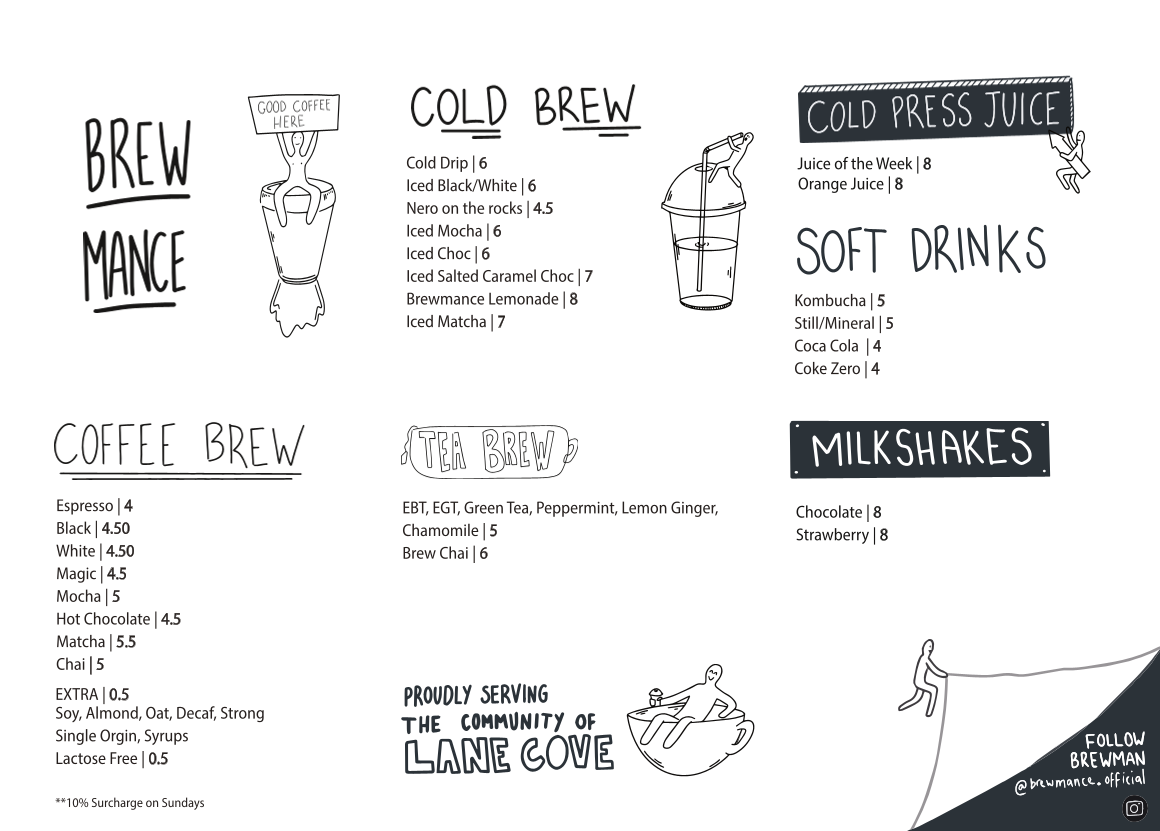 BREW
MANCE
GOOD COFFEE
HERE
COLD BREW
Cold Drip | 6
Iced Black/White | 6
Nero on the rocks | 4.5
Iced Mocha | 6
Iced Choc | 6
Iced Salted Caramel Choc | 7
Brewmance Lemonade | 8
Iced Matcha | 7
COLD PRESS JUICE
Juice of the Week | 8
Orange Juice | 8
SOFT DRINKS
Kombucha | 5
Still/Mineral | 5
Coca Cola | 4
Coke Zero | 4
COFFEE BREW
Espresso | 4
Black | 4.50
White | 4.50
Magic | 4.5
Mocha | 5
Hot Chocolate | 4.5
Matcha | 5.5
Chai | 5
EXTRA | 0.5
Soy, Almond, Oat, Decaf, Strong
Single Orgin, Syrups
Lactose Free | 0.5
**10% Surcharge on Sundays
TEA BREW
EBT, EGT, Green Tea, Peppermint, Lemon Ginger,
Chamomile | 5
Brew Chai | 6
PROUDLY SERVING
THE COMMUNITY OF
LANE COVE
MILKSHAKES
Chocolate | 8
Strawberry | 8
FOLLOW
BREWMAN
@brewmance.official